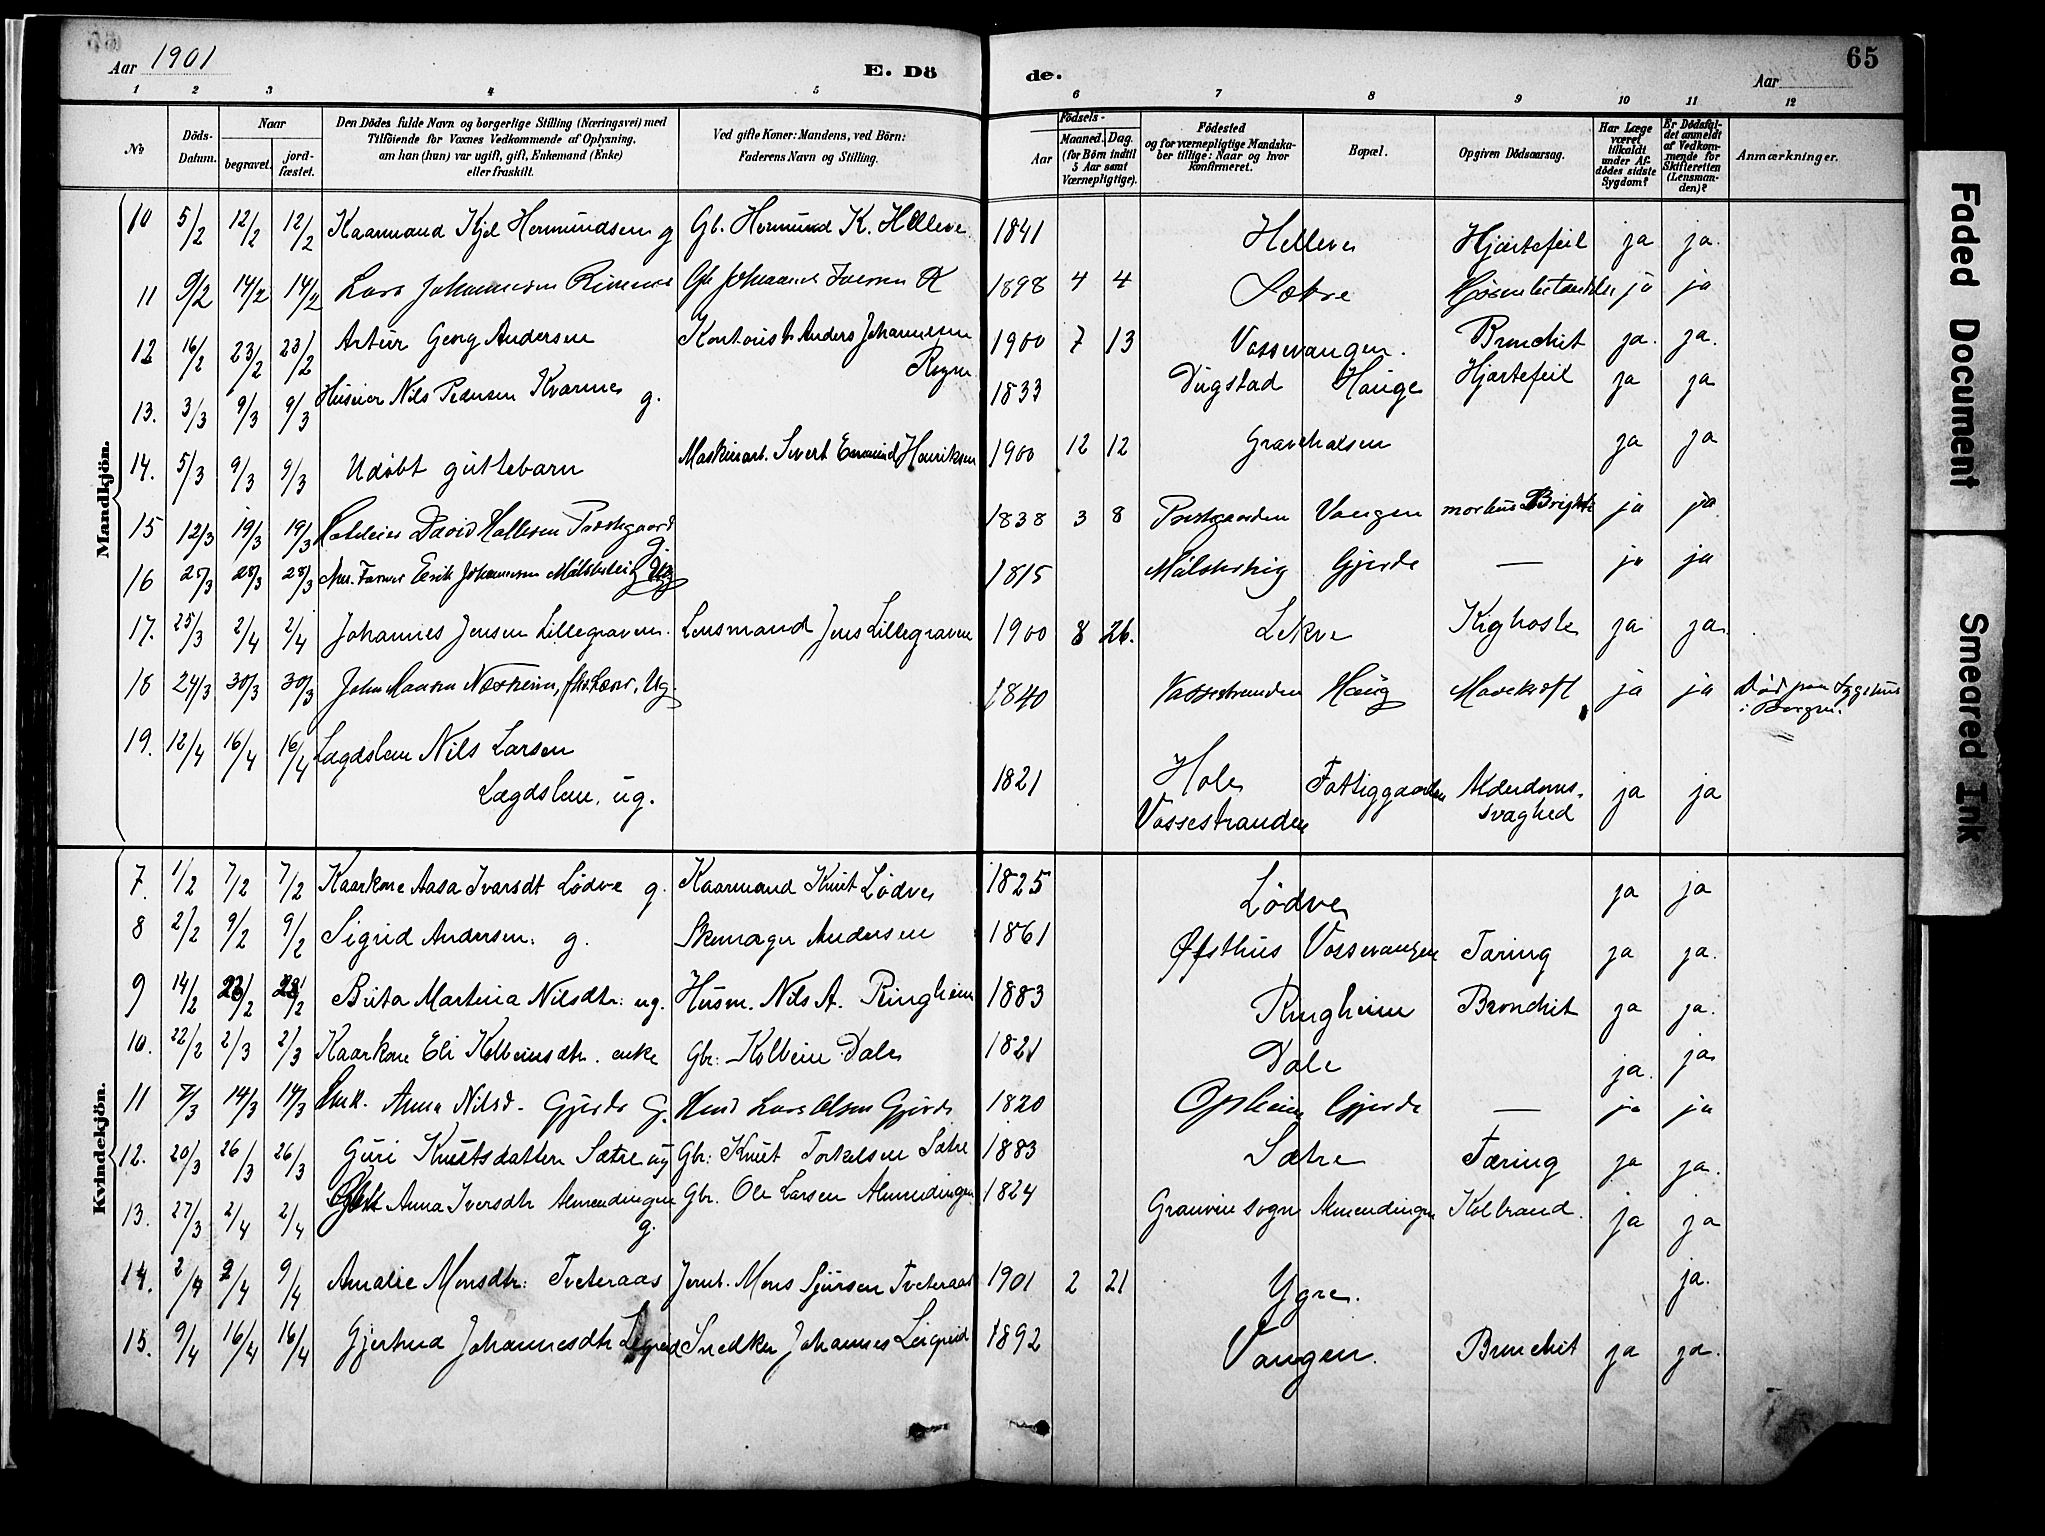 Aar 1901
E. Dö
de.
65
Aar
1 2 3 4 5 6 7 8 9 10 11 12
No
Döds-Datum.
Naar
begravet.
jord-fæstet.
Den Dödes fulde Navn og borgerlige Stilling (Næringsvei) med
Tilföiende for Voxnes Vedkommende af Oplysning,
om han (hun) var ugift, gift, Enkemand (Enke)
eller fraskilt.
Ved gifte Koner: Mandens, ved Börn:
Faderens Navn og Stilling.
Födsels-
Aar
Maaned. Dag.
(for Börn indtil
5 Aar samt
Værnepligtige).
Födested
og for værnepligtige Mandska-
ber tillige: Naar og hvor
konfirmeret.
Bopæl.
Opgiven Dödsaarsag.
Har Læge
været
tilkaldt
under Af-
dödes sidste
Sygdom?
Er Dödsfal-
det anmeldt
af Vedkom-
mende for
Skifteretten
(Lensman-
den)?
Anmærkninger.
Mandkjön.
10 5/2 12/2 12/2 Kaarmand Kjel Hermundsen g Gb. Hermund K. Helleve 1841 Helleve Hjærtefeil ja ja.
11 9/2 14/2 14/2 Lars Johannesen Gb Johannes Iversen 1898 4 4 Sætre ja ja
12 16/2 23/2 23/2 Artur Georg Andersen Kontorist Anders Johannesen 1900 7 13 Vossevangen. Bronchit ja. ja.
13. 3/3 9/3 9/3 Husmr Nils Pedersen Kvarme g. 1833 Dugstad Hauge Hjartefeil ja ja
14. 5/3 9/3 9/3 Udøbt guttebarn Maskinarb. Sivert Henriksen 1900 12 12 Gravehalsen ja ja
15 12/3 19/3 19/3 David Hallesen g. 1838 3 8 Vangen morbus Brightii ja ja
16 25/3 28/3 28/3 Erik Johannesen ug 1815 Gjerde — ja ja
17. 25/3 2/4 2/4 Johannes Jensen Lillegraven. Lensmand Jens Lillegraven 1900 8 26. Lekve Kighoste ja ja.
18 24/3 30/3 30/3 John Monsen Næsheim, Ug. 1840 Vossestranden Haug Mavekræft ja ja Død paa Sygehus
i Bergen.
19. 12/4 16/4 16/4 Lægdslem Nils Larsen
Lægdslem, ug.
1821 Hole
Vossestranden
Fattiggaarden Alderdoms-
svaghed
ja ja
Kvindekjön.
7. 1/2 7/2 7/2 Kaarkone Aasa Ivarsdt Lødve g. Kaarmand Knut Lødve 1825 Lødve ja ja
8 2/2 9/2 9/2 Sigrid Andersen. g. Skomager Andersen 1861 Øfsthus Vossevangen Tæring ja ja.
9 14/2 23/2 23/2 Brita Martina Nilsdtr: ug. Husm. Nils A. Ringheim 1883 Ringheim Bronchit ja ja.
10. 22/2 2/3 2/3 Kaarkone Eli Kolbeinsdtr. enke Gbr: Kolbein Dale 1821 Dale ja. ja
11 14/3 14/3 Anna Nilsd. Gjerde g. Lars Olsen Gjerde 1820 Opheim Gjerde — ja ja
12. 20/3 26/3 26/3 Guri Knutsdatter Sætre ug Gbr: Knut Torkelsen Sætre 1883 Sætre Tæring ja ja.
13. 27/3 2/4 2/4 Anna Iversdtr Almendingen g. Gbr. Ole Larsen Almendingen 1824 Graven sogn Almendingen Kolbrand. ja ja
14. 2/4 9/4 9/4 Amalie Monsdtr: Tveteraas Jernb. Mons Sjursen Tveteraas 1901 2 21 Ygre. ja.
15. 9/4 16/4 16/4 Gjertrud Johannesdtr Snedker Johannes Leiqreid 1892 Vangen. Bronchit ja ja.
Faded Document
Smeared Ink